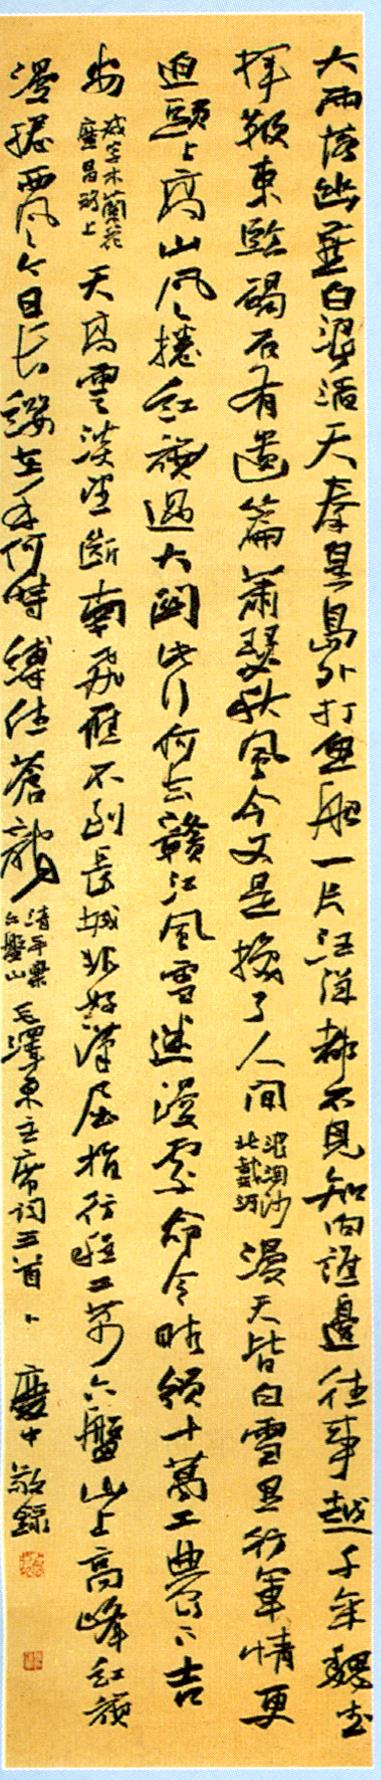 大雨落幽燕白浪滔天秦皇島外打魚船一片汪洋都不見知向誰邊往事越千年魏武
揮鞭東臨碣石有遺篇蕭瑟秋風今又是換了人間 浪淘沙北戴河 漫天皆白雪里行軍情更
迫頭上高山風捲紅旗過大關此行何去贛江風雪迷漫處命令昨頒十萬工農下吉
安 减字木蘭花廣昌路上 天高雲淡望斷南飛雁不到長城非好漢屈指行程二萬六盤山上高峰紅旗
漫捲西風今日長纓在手何時縛住蒼龍 清平樂六盤山 毛澤東主席詞三首 慶中敬錄